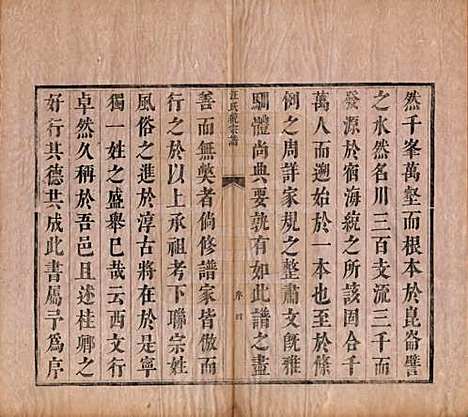 然千峯萬壑而根本於崑崙譬
之水然名川三百支流三千而
發源於宿海統之所該固合千
萬人而遡始於一本也至於條
例之周詳家規之整肅文旣雅
馴體尚典要孰有如此譜之盡
汪氏統宗譜
序 四
善而無美者倘修譜家皆倣而
行之於以上承祖考下聯宗姓
風俗之進於淳古將在於是寧
獨一姓之盛舉已哉云西文行
卓然久稱於吾邑且述桂卿之
好行其德共成此書屬予爲序